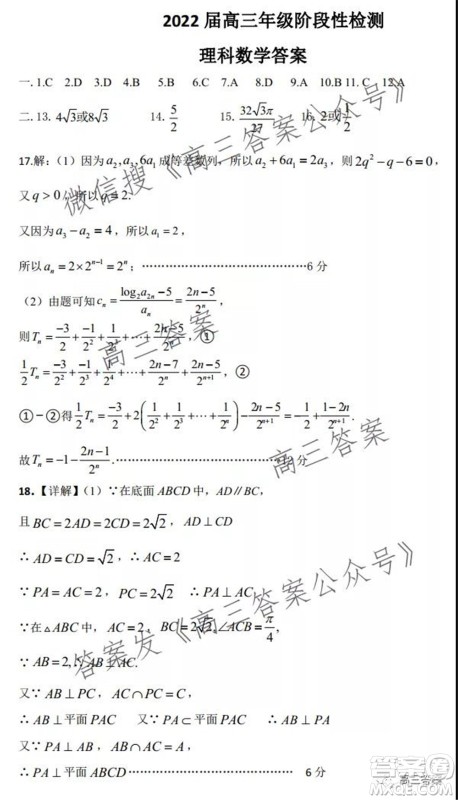 2022 届高三年级阶段性检测
理科数学答案
一. 1.C 2.D 3.D 4.B 5.B 6.C 7.A 8.D 9.A 10.B 11. C 12.A
二. 13. 4√3或8√3 14. 5/2 15. 32√3π/27 16. 2或1/2
17.解:（1）因为 a₂,a₃,6a₁ 成等差数列，所以 a₂+6a₁=2a₃，则 2q²-q-6=0，
又 q>0，所以 q=2.
又因为 a₃-a₂=4，所以 a₁=2，
所以 aₙ=2×2ⁿ⁻¹=2ⁿ；……………………………6 分
（2）由题可知 cₙ=(log₂a₂ₙ-5)/aₙ=(2n-5)/2ⁿ，
则 Tₙ=-3/2+-1/2²+1/2³+…+(2n-5)/2ⁿ，①
1/2Tₙ=-3/2²+-1/2³+1/2⁴+…+(2n-7)/2ⁿ+(2n-5)/2ⁿ⁺¹，②
①-②得 1/2Tₙ=-3/2+2(1/2²+1/2³+…+1/2ⁿ)-(2n-5)/2ⁿ⁺¹=-1/2+(1-2n)/2ⁿ⁺¹，
故 Tₙ=-1-(2n-1)/2ⁿ.……………………分
18.【详解】（1）∵在底面 ABCD 中，AD∥BC，
且 BC=2AD=2CD=2√2，AD⊥CD
∴ AD=CD=√2，∴ AC=2
又∵ PA=AC=2，PC=2√2 ∴ PA⊥AC
∵在△ABC 中，AC=2，BC=2√2，∠ACB=π/4，
∵ AB=2，∴ AB⊥AC.
又∵ AB⊥PC，AC∩PC=C，
∴ AB⊥平面 PAC 又∵ PA⊂平面 PAC ∴ AB⊥PA
又∵ PA⊥AB，AB∩AC=A，
∴ PA⊥平面 ABCD………………………… 6 分
微信搜《高三答案公众号》
高三答案
高三答案
答案发《高三答案公众号》
答案圈
高三答案
MXQE.COM